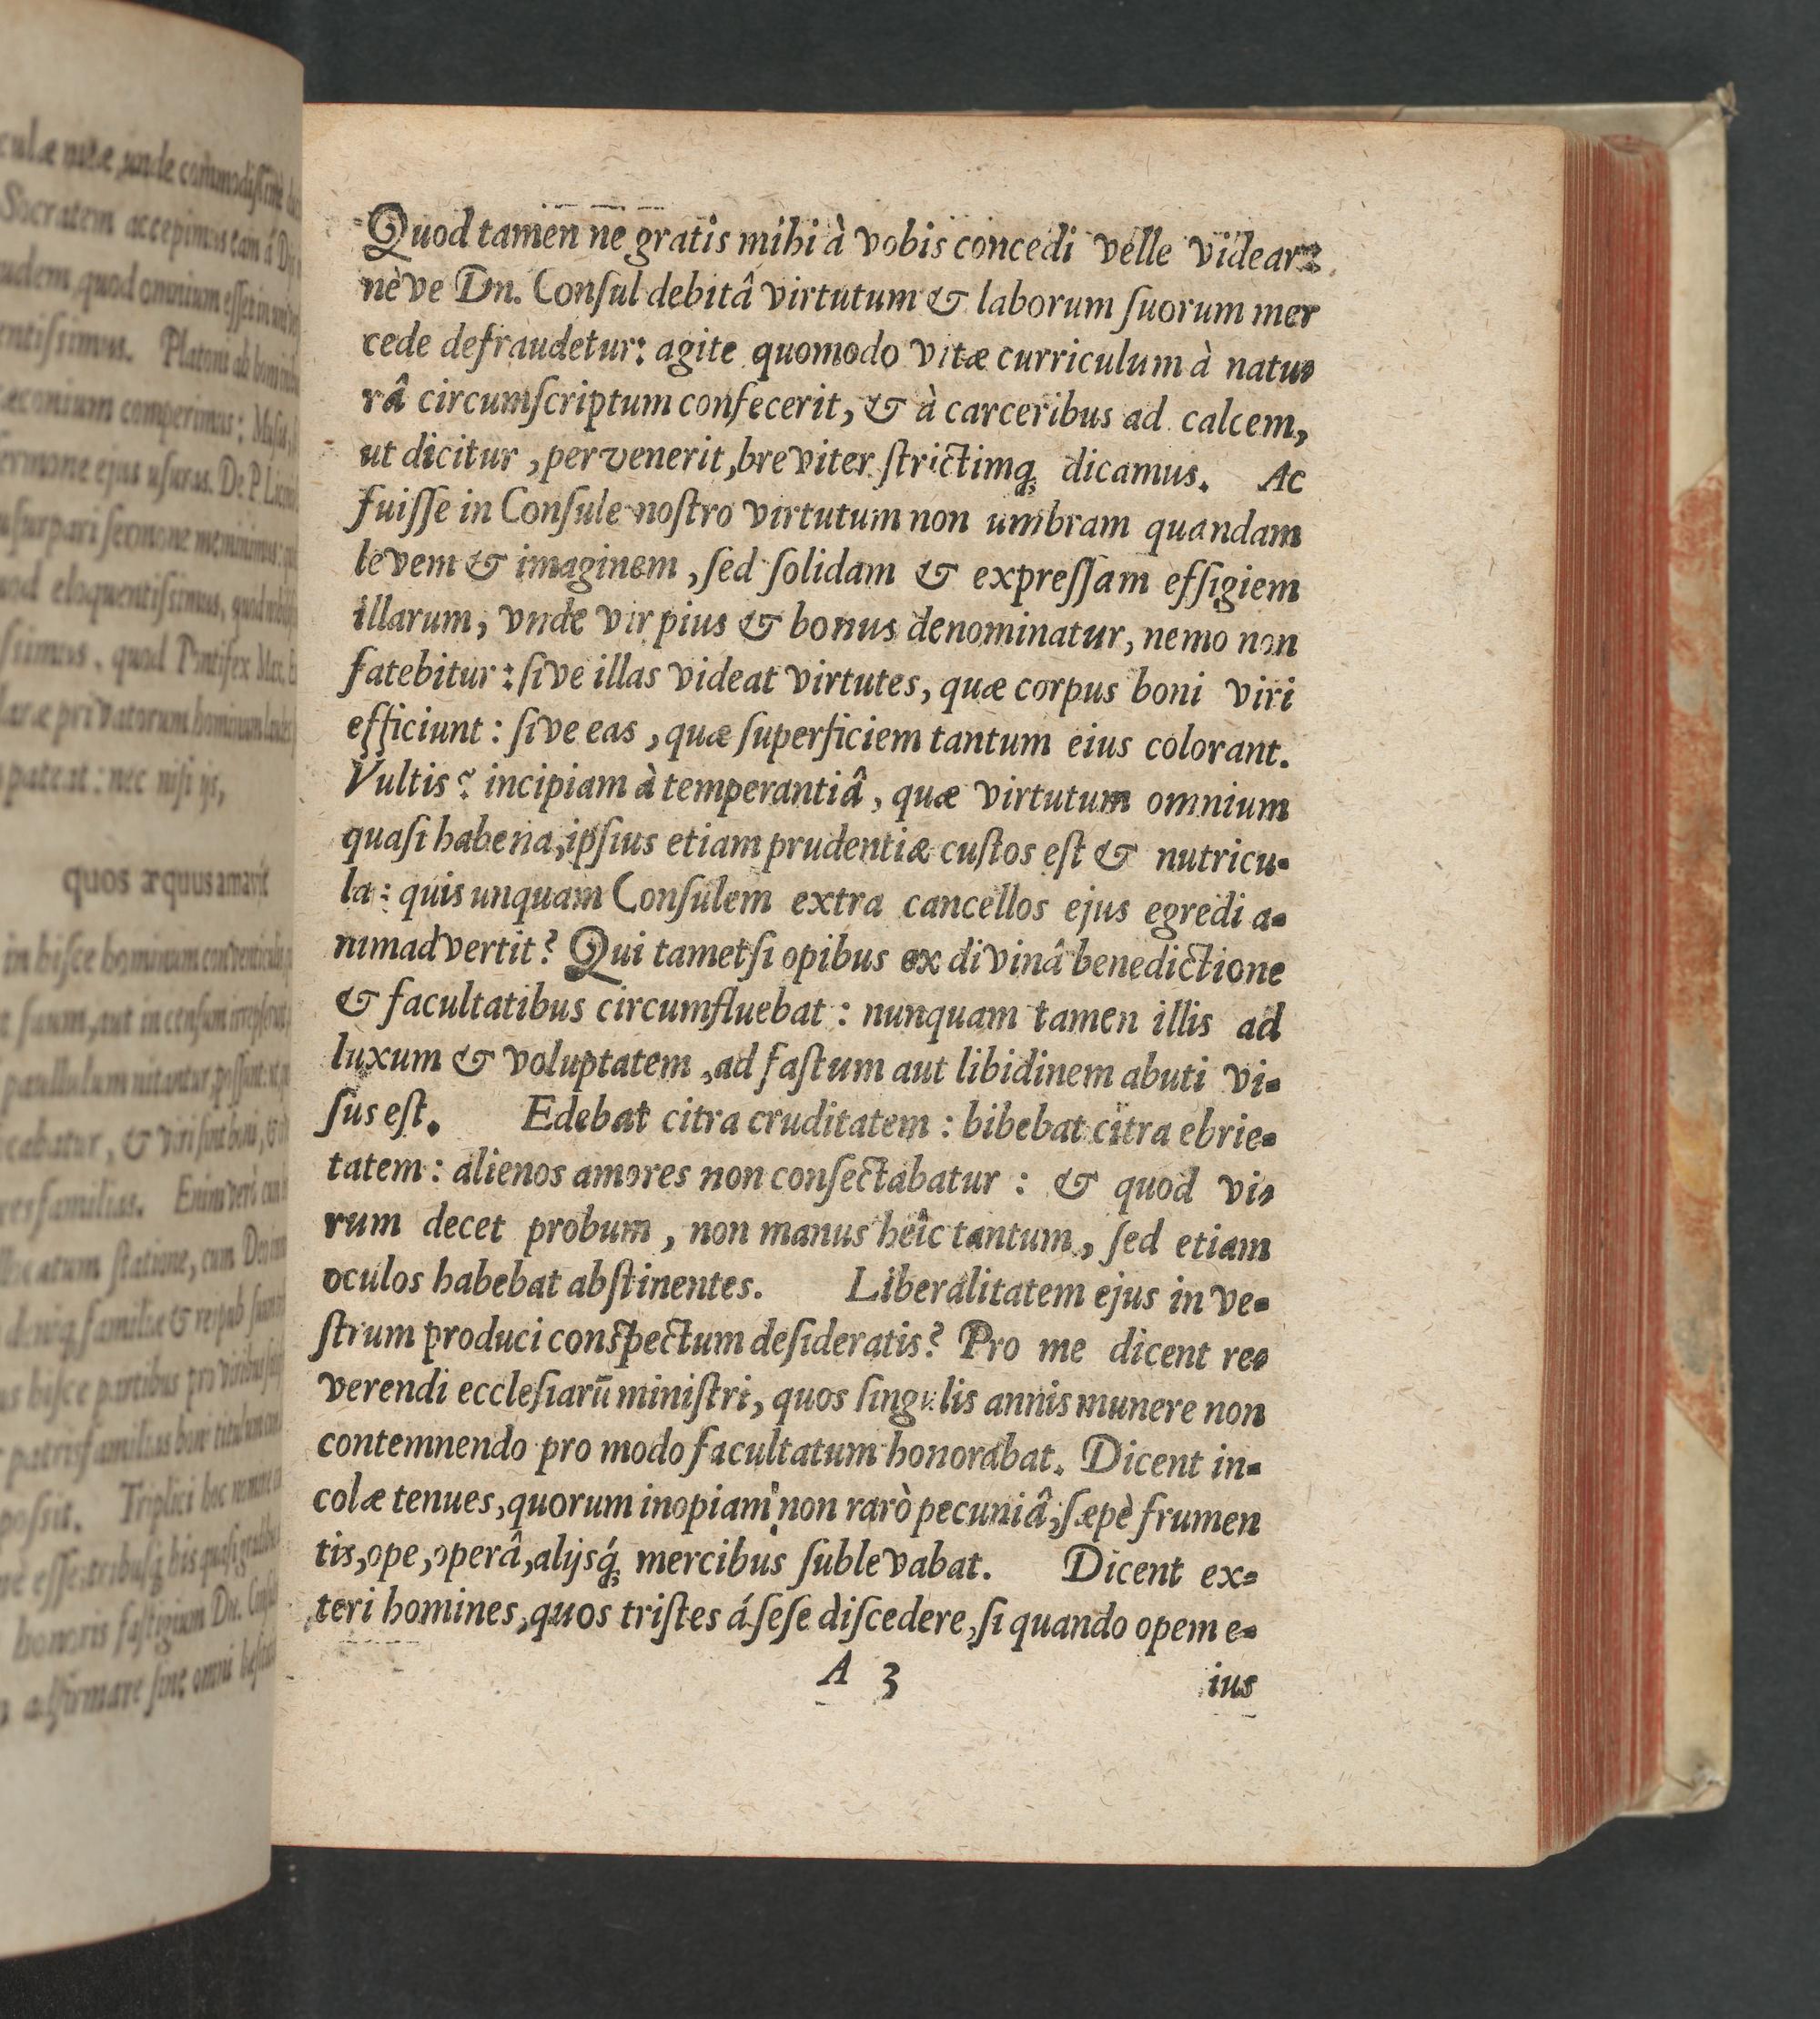 culæ
Socratem accepimus
quod omnium esset in
entissimus. Platoni ab
æconium comperimus;
sermone ejus usuros. De P.
usurpari sermone meminimus:
quod eloquentissimus,
ssimus, quod Pontifex Max.
privatorum hominum
pateat: nec nisi ijs,
quos æquus amavit
in hisce hominum
suum, aut in censum
paullulum nitantur, possint:
& viri sint boni, &
resfamilias. Enim verò
statione, cum Deo
familiæ & reipub.
hisce partibus pro viribus
patrisfamilias hunc titulum
possit. Triplici hoc
esse: tribusq́; his quasi
honoris fastigium Dn.
adfirmare sine omni
Quod tamen ne gratis mihi à vobis concedi velle videar:
nève Dn. Conſul debitâ virtutum & laborum ſuorum mer
cede defraudetur: agite quomodo vitæ curriculum à natu-
râ circumſcriptum confecerit, & à carceribus ad calcem,
ut dicitur, pervenerit, breviter ſtrictimq; dicamus. Ac
fuiſſe in Conſule noſtro virtutum non umbram quandam
levem & imaginem, ſed ſolidam & expreſſam effigiem
illarum, vnde vir pius & bonus denominatur, nemo non
fatebitur: ſive illas videat virtutes, quæ corpus boni viri
efficiunt: ſive eas, quæ ſuperficiem tantum eius colorant.
Vultis? incipiam à temperantiâ, quæ virtutum omnium
quaſi habena, ipſius etiam prudentiæ cuſtos eſt & nutricu-
la: quis unquam Conſulem extra cancellos ejus egredi a-
nimadvertit? Qui tametſi opibus ex divinâ benedictione
& facultatibus circumfluebat: nunquam tamen illis ad
luxum & voluptatem, ad faſtum aut libidinem abuti vi-
ſus eſt. Edebat citra cruditatem: bibebat citra ebrie-
tatem: alienos amores non conſectabatur: & quod vi-
rum decet probum, non manus heîc tantum, ſed etiam
oculos habebat abſtinentes. Liberalitatem ejus in ve-
ſtrum produci conſpectum deſideratis? Pro me dicent re-
verendi eccleſiarū miniſtri, quos ſingulis annis munere non
contemnendo pro modo facultatum honorabat. Dicent in-
colæ tenues, quorum inopiam non rarò pecuniâ, ſæpè frumen
tis, ope, operâ, alijsq́; mercibus ſublevabat. Dicent ex-
teri homines, quos triſtes á ſeſe diſcedere, ſi quando opem e-
A 3 ius